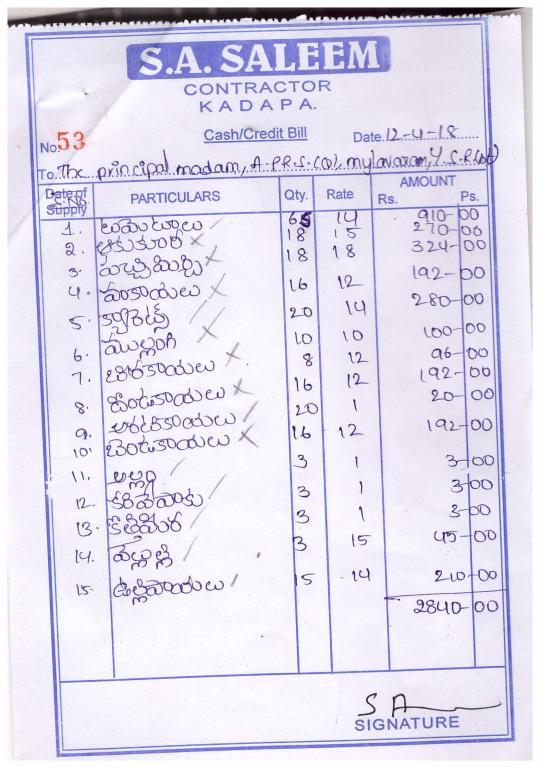 S.A. SALEEM
CONTRACTOR
KADAPA.
Cash/Credit Bill
No. 53 Date 12-4-18
To. The principal madam, A.P.R.S.(G), mylavaram, Y.S.R(Dt)
Date of Supply PARTICULARS Qty. Rate AMOUNT
S.No. Rs. Ps.
1. టమెటాలు 65 14 910-00
2. ఆకుకూర 18 15 270-00
3. పచ్చిమిర్చి 18 18 324-00
4. వంకాయలు 16 12 192-00
5. క్యారెట్స్ 20 14 280-00
6. ముల్లంగి 10 10 100-00
7. బీరకాయలు 8 12 96-00
8. దొండకాయలు 16 12 192-00
9. అరటికాయలు 20 1 20-00
10. బెండకాయలు 16 12 192-00
11. అల్లం 3 1 3-00
12. కరివేపాకు 3 1 3-00
13. కొత్తిమీర 3 1 3-00
14. వెల్లుల్లి 3 15 45-00
15. ఉల్లిపాయలు 15 14 210-00
2840-00
S A
SIGNATURE